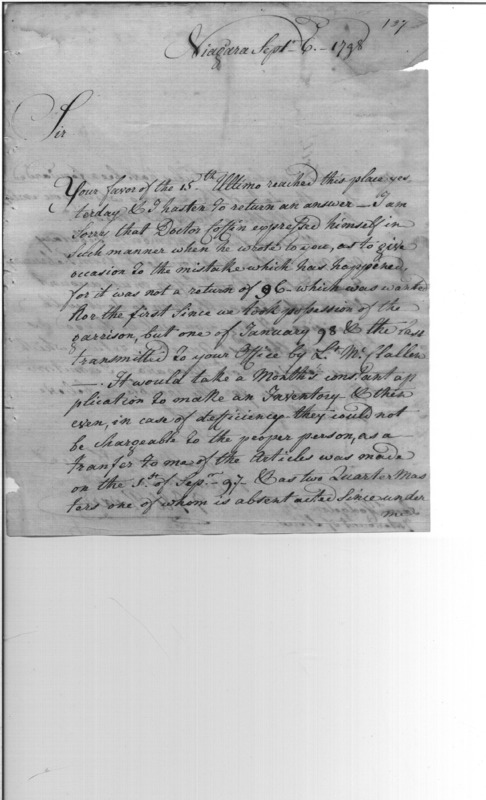 127
Niagara Sept.r 6.- 1798
Sir
Your favor of the 15.th Ultimo reached this place yes
terday & I hasten to return an answer - I am
sorry that Doctor Coffin expressed himself in
such manner when he wrote to you, as to give
occasion to the mistake which has happened,
for it was not a return of 96 - which was wanted
Nor the first since we took possession of the
garrison, but one of January 98 & the
transmitted to your Office by Lt. McClallen
-. It would take a Month's constant ap
plication to make an Inventory - & then
even, in case of defficiency they could not
be chargeable to the proper person, as a
transfer to me of the Articles was made
on the 1.st of Sep.r 97 - & as two Quarter Mas
ters one of whom is absent acted since under
me